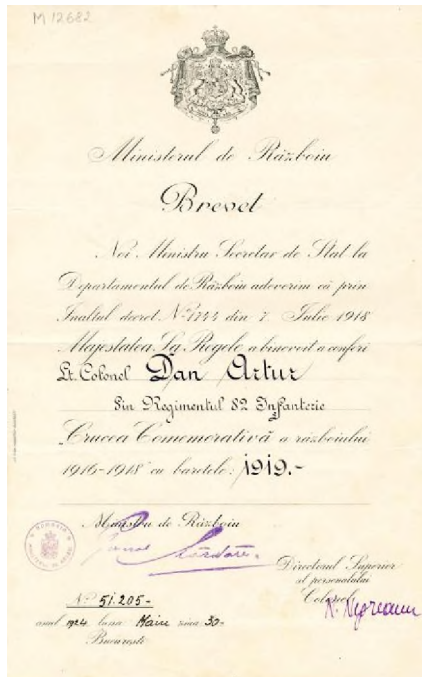 M 12682
Ministerul de Războiu
Brevet
Noi Ministru Secretar de Stat la
Departamentul de Războiu adeverim că prin
Inaltul decret No 1744 din 7 Iulie 1918
Majestatea Sa Regele a binevoit a conferi
Lt. Colonel Dan Artur
din Regimentul 82 Infanterie
"Crucea Comemorativă a războiului
1916-1918" cu baretele: 1919.-
Ministru de Războiu
Directorul Superior
al personalului
Colonel
No 51.205-
anul 1924 luna Maiu ziua 30-
Bucureşti